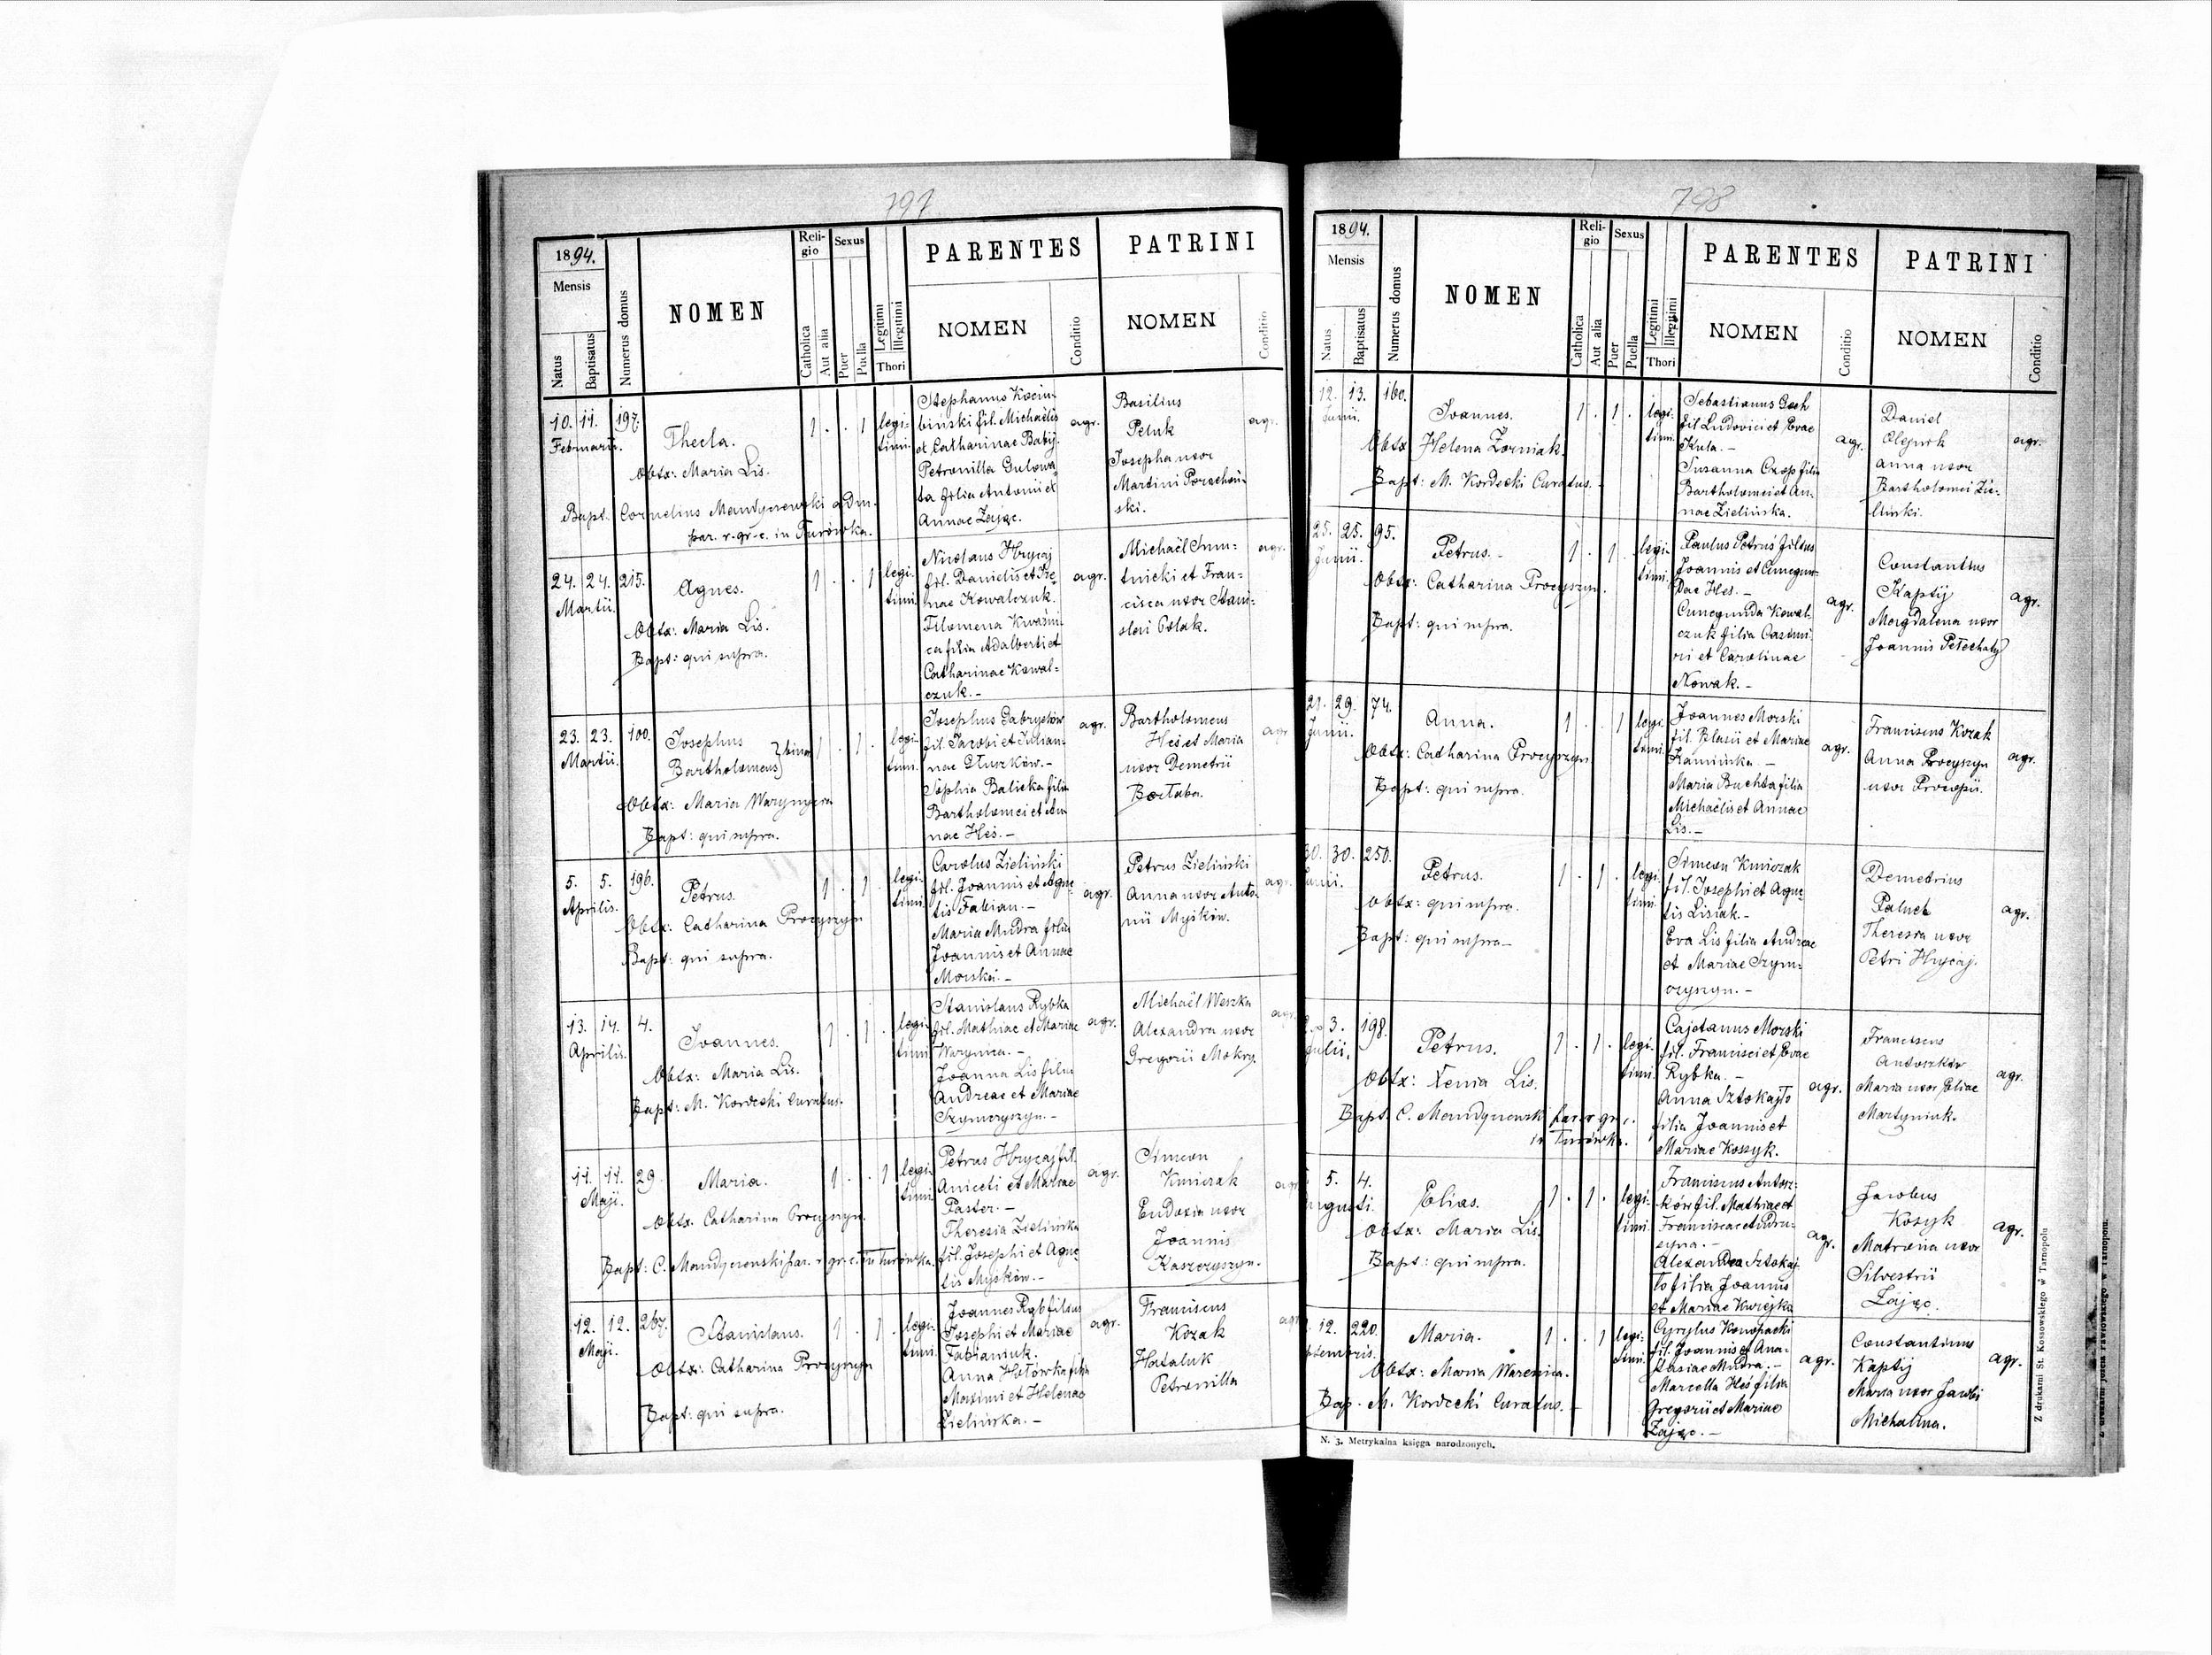 797
1894.
Mensis
Natus
Baptisatus
Numerus domus
NOMEN
Religio
Catholica
Aut alia
Sexus
Puer
Puella
Legitimi
Illegitimi
Thori
PARENTES
NOMEN
Conditio
PATRINI
NOMEN
Conditio
10. 11. 197.
Februarii.
Thecla.
Obstx: Maria Lis.
Bapt. Cornelius Mandyczewski adm.
par. r. gr. c. in Turówka.
1 . . 1
legi-
timi.
Stephanus Kocim-
biński fil. Michaelis
et Catharinae Batij.
Petronilla Gulowa-
ta filia Antonii et
Annae Zając.
agr.
Basilius
Peluk
Josepha uxor
Martini Porschań-
ski.
agr.
24. 24. 215.
Martii.
Agnes.
Obstx: Maria Lis.
Bapt: qui supra.
1 . . 1
legi-
timi.
Nicolaus Hrycaj
fil. Danielis et Ire-
nae Kowalczuk.
Filomena Kwaśni-
ca filia Adalberti et
Catharinae Kowal-
czuk. -
agr.
Michaël Smu-
tnicki et Fran-
cisca uxor Stani-
slai Polak.
agr.
23. 23. 100.
Martii.
Josephus
Bartholomeus } bini
Obstx: Maria Warynycia
Bapt: qui supra.
1 . 1 .
legi-
timi.
Josephus Gabryelów
fil. Jacobi et Julian-
nae Głuszków. -
Sophia Balicka filia
Bartholomei et An-
nae Heś. -
agr.
Bartholomeus
Heś et Maria
uxor Demetrii
Bałtaba.
agr
5. 5. 196.
Aprilis.
Petrus.
Obstx: Catharina Procyszyn
Bapt: qui supra.
1 . 1 .
legi-
timi.
Carolus Zieliński
fil. Joannis et Agne-
tis Fabian. -
Maria Mudra filia
Joannis et Annae
Morska. -
agr.
Petrus Zieliński
Anna uxor Anto-
nii Myśków.
agr
13. 14. 4.
Aprilis.
Joannes.
Obstx: Maria Lis.
Bapt: M. Kordecki Curatus.
1 . 1 .
legi-
timi.
Stanislaus Rybka
fil. Mathiae et Mariae
Warynica. -
Joanna Lis filia
Andreae et Mariae
Szymczyszyn. -
agr.
Michaël Weszka
Alexandra uxor
Gregorii Mokry.
agr
11. 11. 29.
Maji.
Maria.
Obstx. Catharina Procyszyn.
Bapt: C. Mandyczewski par. r. gr. c. in Turówka.
1 . . 1
legi-
timi.
Petrus Hrycaj fil.
Aniceti et Mariae
Paster. -
Theresia Zielińska
fil. Josephi et Agne-
tis Myśków. -
agr.
Simeon
Kmiczak
Eudoxia uxor
Joannis
Kaszczyszyn.
agr
12. 12. 267.
Maji.
Stanislaus.
Obstx: Catharina Procyszyn
Bapt: qui supra.
1 . 1 .
legi-
timi.
Joannes Ryb filius
Josephi et Mariae
Fabianiuk.
Anna Hołówka filia
Maximi et Helenae
Zielińska. -
agr.
Franciscus
Kozak
Hataluk
Petronilla
agr
798
1894.
Mensis
Natus
Baptisatus
Numerus domus
NOMEN
Religio
Catholica
Aut alia
Sexus
Puer
Puella
Legitimi
Illegitimi
Thori
PARENTES
NOMEN
Conditio
PATRINI
NOMEN
Conditio
12. 13. 160.
Junii.
Joannes.
Obstx Helena Zorniak.
Bapt: M. Kordecki Curatus.
1 . 1 .
legi-
timi.
Sebastianus Gach
fil Ludovici et Evae
Kula. -
Susanna Czop filia
Bartholomei et An-
nae Zielińska.
agr.
Daniel
Olejnik
Anna uxor
Bartholomei Zie-
liński.
agr.
25. 25. 95.
Junii.
Petrus. -
Obstx: Catharina Procyszyn.
Bapt: qui supra.
1 . 1 .
legi-
timi.
Paulus Petruś filius
Joannis et Cunegun-
dae Heś. -
Cunegunda Kowal-
czuk filia Casimi-
ri et Carolinae
Nowak. -
agr.
Constantius
Kaptij
Magdalena uxor
Joannis Pełechaty
agr.
29. 29. 74.
Junii.
Anna.
Obstx: Catharina Procyszyn
Bapt: qui supra.
1 . . 1
legi-
timi.
Joannes Morski
fil. Blasii et Mariae
Kaminka -
Maria Buchta filia
Michaëlis et Annae
Lis. -
agr.
Franciscus Kozak
Anna Procyszyn
uxor Procopii.
agr.
30. 30. 250.
Junii.
Petrus.
Obstx: qui supra.
Bapt: qui supra -
1 . 1 .
legi-
timi.
Simeon Kmiczak
fil. Josephi et Agne-
tis Lisiak. -
Eva Lis filia Andreae
et Mariae Szym-
czyszyn. -
Demetrius
Paluch
Theresia uxor
Petri Hrycaj.
agr.
3. 198.
Julii.
Petrus.
Obstx: Xenia Lis.
Bapt. C. Mandyczewski par. r. gr. c.
in Turówka.
1 . 1 .
legi-
timi.
Cajetanus Morski
fil. Francisci et Evae
Rybka. -
Anna Sztokajło
filia Joannis et
Mariae Koszyk.
agr.
Franciscus
Antoszków
Maria uxor Eliae
Martyniuk.
agr.
5. 4.
Augusti.
Elias.
Obstx: Maria Lis.
Bapt: qui supra.
1 . 1 .
legi-
timi.
Franciscus Antosz-
ków fil. Mathiae et
Franciscae Andru-
szyna. -
Alexandra Sztokaj-
ło filia Joannis
et Mariae Kwiejka
agr.
Jacobus
Kosyk
Matrona uxor
Silvestrii
Zając.
agr.
12. 220.
Septembris.
Maria.
Obstx: Maria Warenica.
Bap. M. Kordecki Curatus. -
1 . . 1
legi-
timi.
Cyrylus Konopacki
fil. Joannis et Ana-
stasiae Mudra. -
Marcella Heś filia
Gregorii et Mariae
Zając. -
agr.
Constantinus
Kaptij
Maria uxor Jacobi
Michalina.
agr.
N. 3. Metrykalna księga narodzonych.
Z drukarni St. Kossowskiego w Tarnopolu